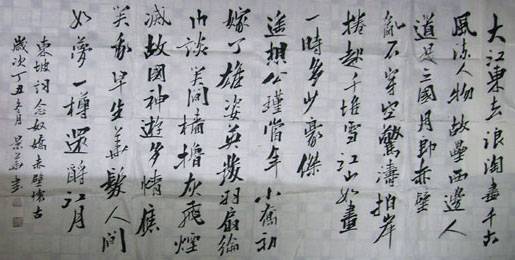 大江東去浪淘盡千古
風流人物故壘西邊人
道是三國周郎赤壁
亂石穿空驚濤拍岸
捲起千堆雪江山如畫
一時多少豪傑
遙想公瑾當年小喬初
嫁了雄姿英發羽扇綸
巾談笑間檣櫓灰飛煙
滅故國神遊多情應
笑我早生華髮人間
如夢一樽還酹江月
東坡詞念奴嬌赤壁懷古
歲次丁丑月 書